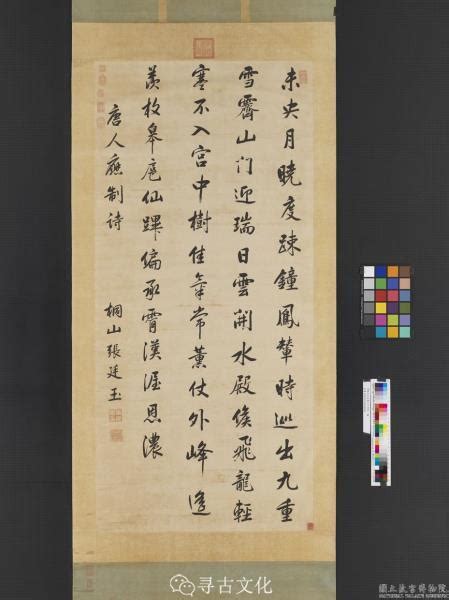 未央月曉度踈鐘鳳輦時巡出九重
雪霽山门迎瑞日雲開水殿候飛龍輕
寒不入宮中樹佳氣常薰仗外峰遥
羨枚皋扈仙蹕偏承霄漢渥恩濃
唐人應制诗 桐山張廷玉
寻古文化
國立故宮博物院